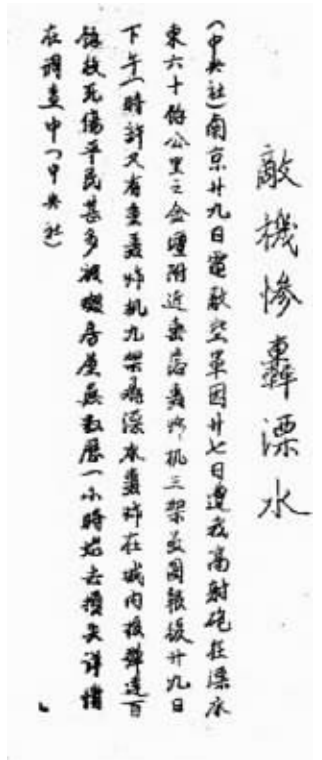 敵機慘轟溧水
(中央社)南京廿九日電敵空軍因廿七日遭我高射砲在溧水
東六十餘公里之金壇附近擊落轟炸机三架並圖報復廿九日
下午一時許又有重轟炸机九架飛溧水轟炸在城内投彈達百
餘枚死傷平民甚多被燬房屋無數歷一小時始去損失詳情
在調查中(中央社)